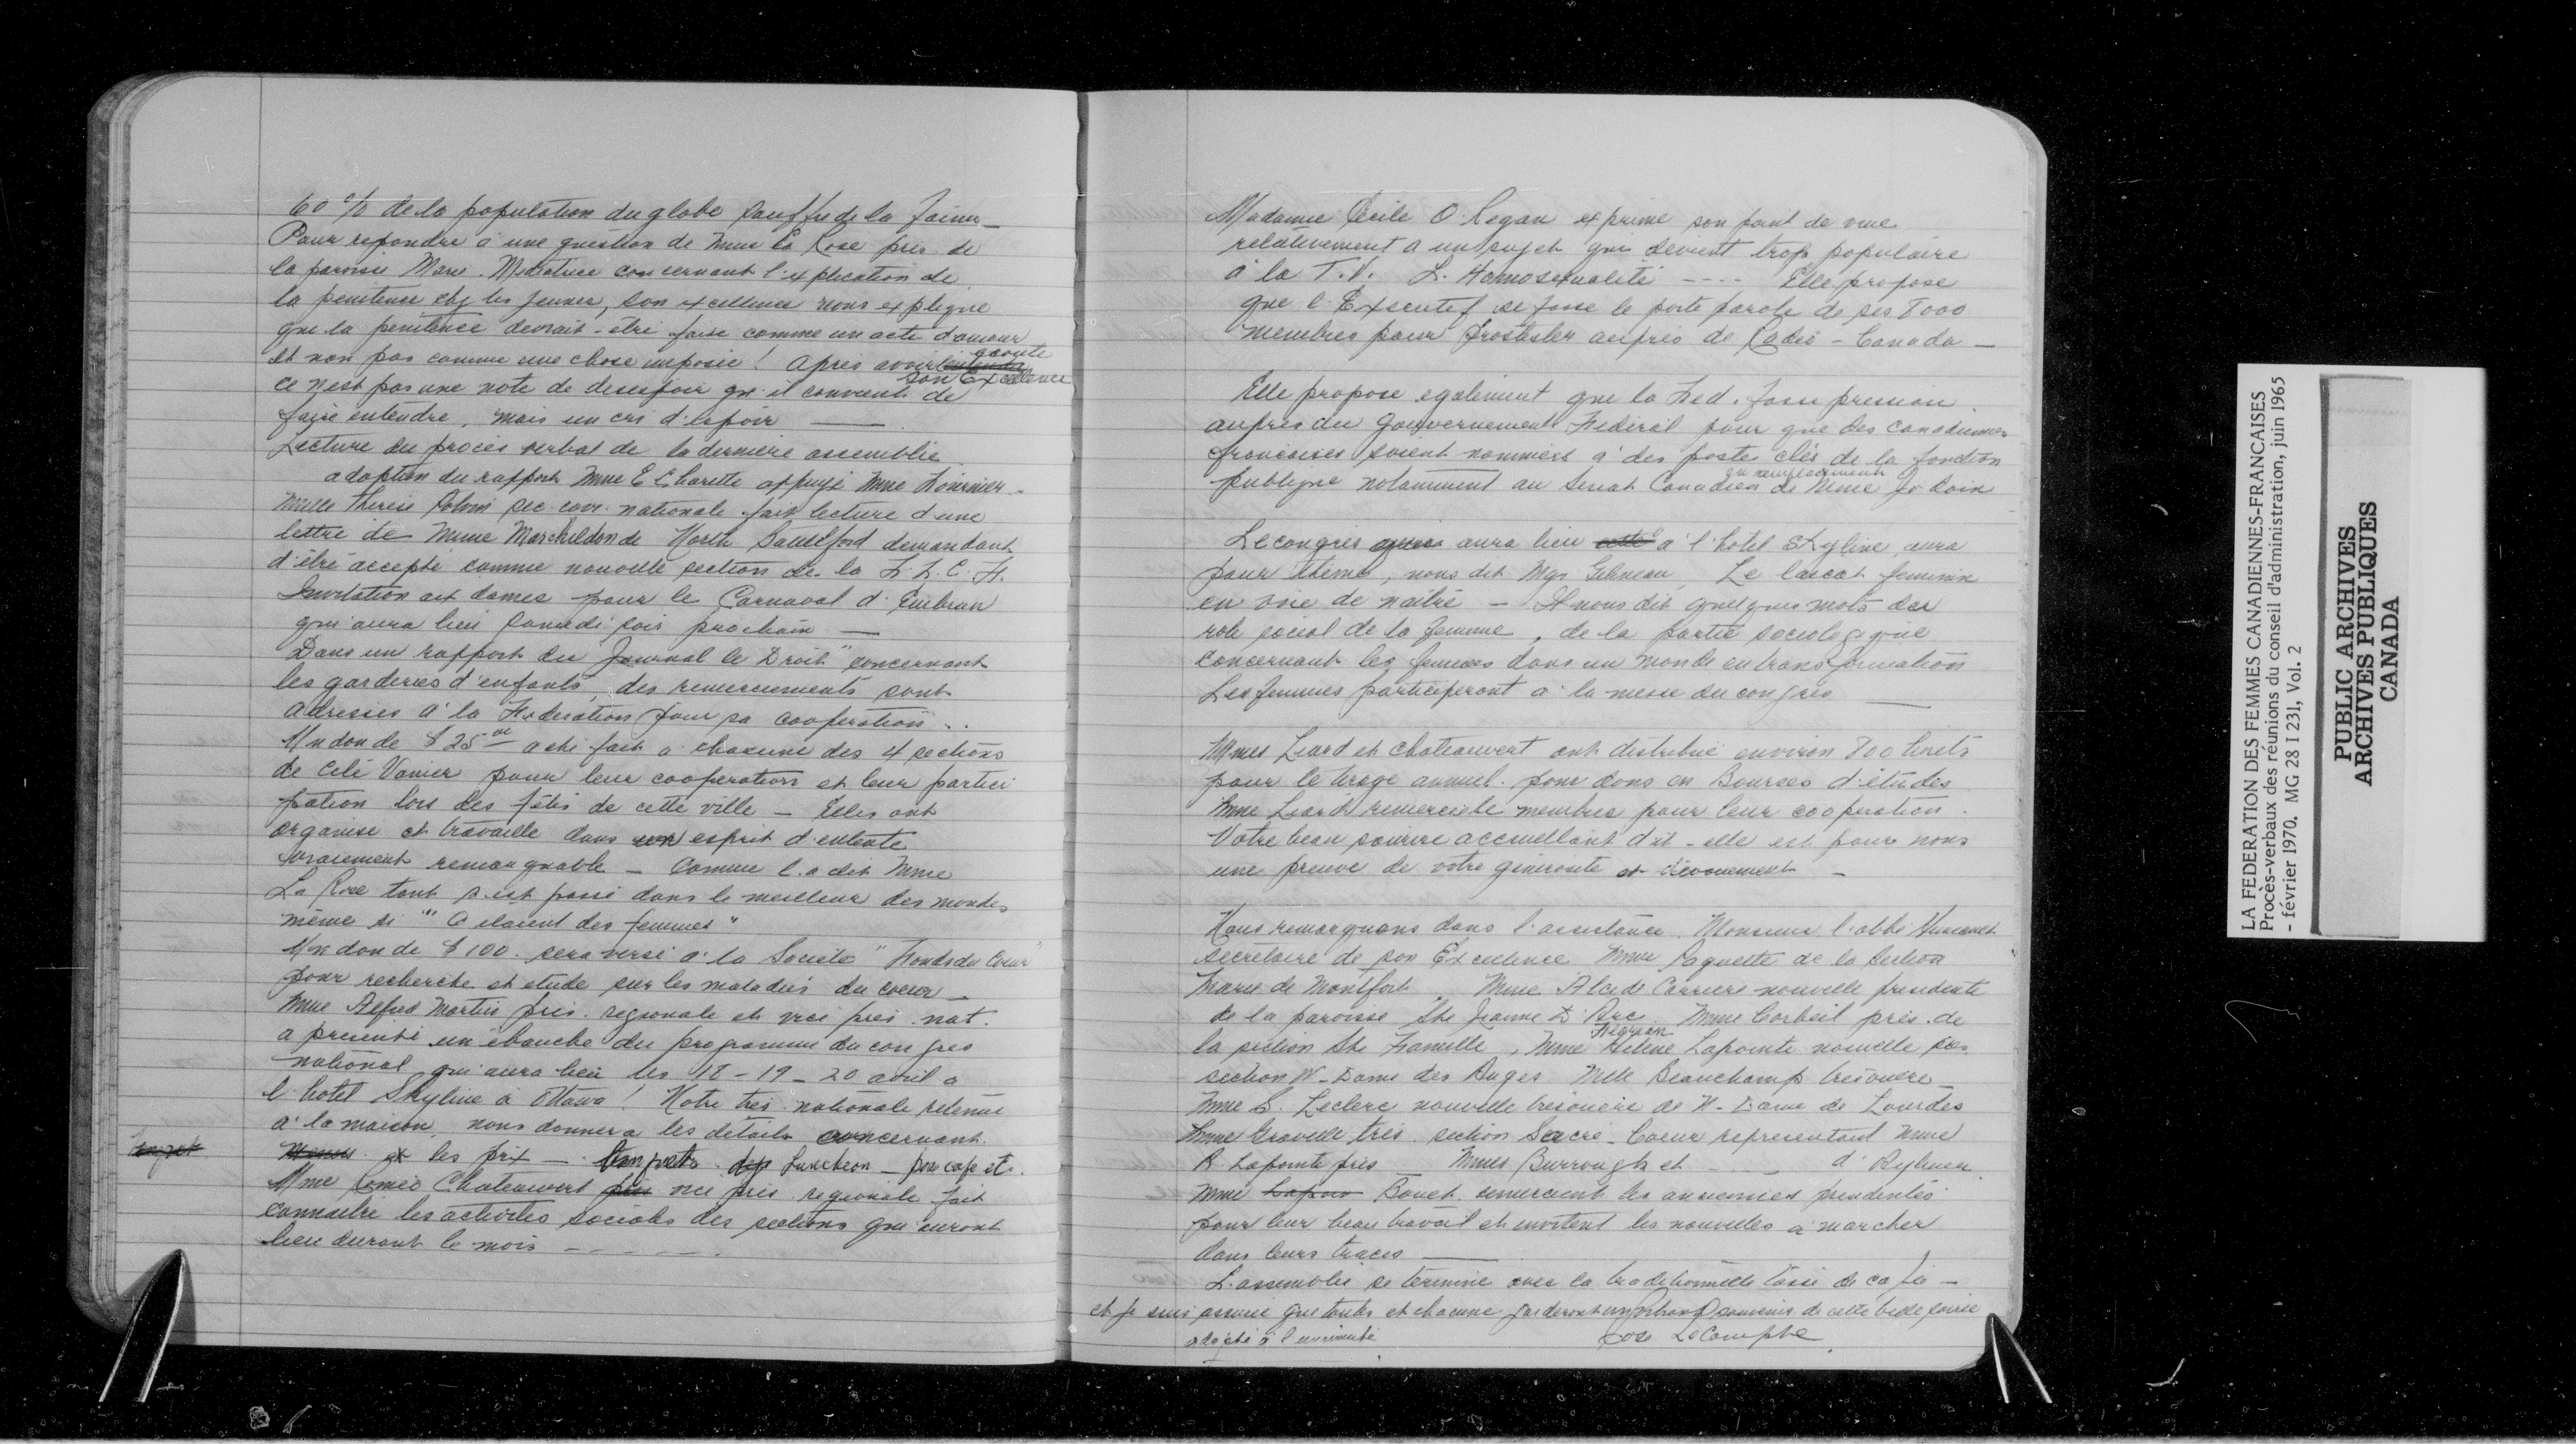 60 % de la population du globe souffre de la faim _
Pour repondre à une question de Mme La Rose pres de
la paroisse Marie. Mediatrice concernant l'explication de
la penitence chez les jeunes, son excellence nous explique
que la penitence devrait-être faite comme un acte d'amour
et non pas comme une chose imposée ! Après avoir écouté
son Excellence
ce n'est pas une note de desespoir qu'il convient de
faire entendre, mais un cri d'espoir ___
Lecture du procès verbal de la dernière assemblée
adoption du rapport Mme E Charette appuyé Mme Fournier -
Melle Therese sec. corr. nationale fait lecture d'une
lettre de Mme Marchildon de North demandant
d'être accepté comme nouvelle section de la F. F. C. F.
Invitation aux dames pour le Carnaval d'Embrun
qui aura lieu samedi soir prochain —
Dans un rapport du Journal le Droit" concernant
les garderies d'enfants, des remerciements sont
adressés à la Federation pour sa cooperation ..
Un don de $ 25 00 a été fait a chacune des 4 sections
de Cité Vanier pour leur cooperation et leur partici
pation lors des fêtes de cette ville — Elles ont
organisé et travaillé dans un esprit d'entente
vraiement remarquable — Comme l'a dit Mme
La Rose tout s'est passé dans le meilleur des mondes
même si "" C'etaient des femmes"
Un don de $ 100. sera versé à la Societé " Fonds du Coeur"
pour recherche et etude sur les maladies du coeur _
Mme Alfred Martin prés. regionale et vice prés. nat.
a presenté un ébauche du programme du congres
national qui aura lieu les 18 - 19 - 20 avril a
l'hotel Skyline à Ottawa ! Notre tres. nationale retenue
à la maison, nous donnera les détails concernant
les prix — Luncheon — pour cafe etc.
Mme Romeo Chateauvert vice pres. regionale fait
connaitre les activites sociales des sections qui auront
lieu durant le mois - - - - - -
Madame Cécile O. Regan exprime son point de vue
relativement a un sujet qui devient trop populaire
à la T.V. L. Homosexualité ---- Elle propose
que l'Executif se fasse le porte parole de ses 8000
membres pour protester auprès de Radio - Canada —
Elle propose egalement que la Fed. fasse pression
aupres du Gouvernement Fédéral pour que des canadiennes
francaises soient nommées a des postes clés de la fonction
en remplacement
publique notamment au Senat Canadien de Mme Jodoin
Le congrès aura lieu a l'hotel Skyline, aura
pour thème, nous dit Mgr, Le laicat feminin
en voie de naitre — Il nous dit quelques mots du
role social de la femme, de la partie sociologique
concernant les femmes dans un monde en transformation
Les femmes participeront a la messe du congrès ___
Mmes Liard et Chateauvert ont distribué environ 800 livrets
pour le tirage annuel. pour dons en Bourses d'études
Mme Liard remercie le membres pour leur cooperation.
Votre beau sourire accueillant dit-elle est pour nous
une preuve de votre génerosité et dévouement _
Nous remarquons dans l'assistance Monsieur l'abbé
secrétaire de son Excellence Mme Paquette de la Section
Marie de Montfort. Mme Alcide Carriere nouvelle presidente
de la paroisse Ste Jeanne D'Arc. Mme Corbeil près. de
la section Ste Famille, Mme Hélène Lapointe nouvelle
section N - Dame des Anges Melle Beauchamp tresoriere _
Mme S. Leclerc nouvelle tresoriere de N - Dame de Lourdes
Mme Gravelle tres. section Sacré - Coeur representant Mme
R. Lapointe pres _ Mmes Burroughs et ---- d'
Mme Bouet remercient les anciennes presidentes
pour leur beau travail et invitent les nouvelles à marcher
dans leurs traces ___
L'assemblée se termine avec la traditionnelle tasse de café —
et je suis assurée que toutes et chacune garderont un souvenir de cette belle soirée
adopté à l'unanimité LeCompte
LA FEDERATION DES FEMMES CANADIENNES-FRANCAISES
Procès-verbaux des réunions du conseil d'administration, juin 1965
- février 1970. MG 28 I 231, Vol. 2
PUBLIC ARCHIVES
ARCHIVES PUBLIQUES
CANADA